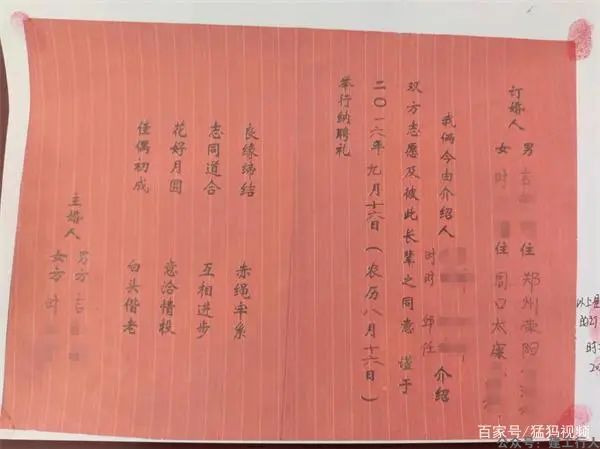 订婚人 男 吉 住 郑州荥阳
女 时 住 周口太康
我俩今由介绍人 时 时 邱 任 介绍
双方志愿及彼此长辈之同意 谨于
二〇一六年九月十六日(农历八月十六日)
举行纳聘礼
良缘缔结 赤绳牢系
志同道合 互相进步
花好月圆 意洽情投
佳偶初成 白头偕老
主婚人 男方 吉
女方 时
以上是
时
20
百家号/猛犸视频
公众号: